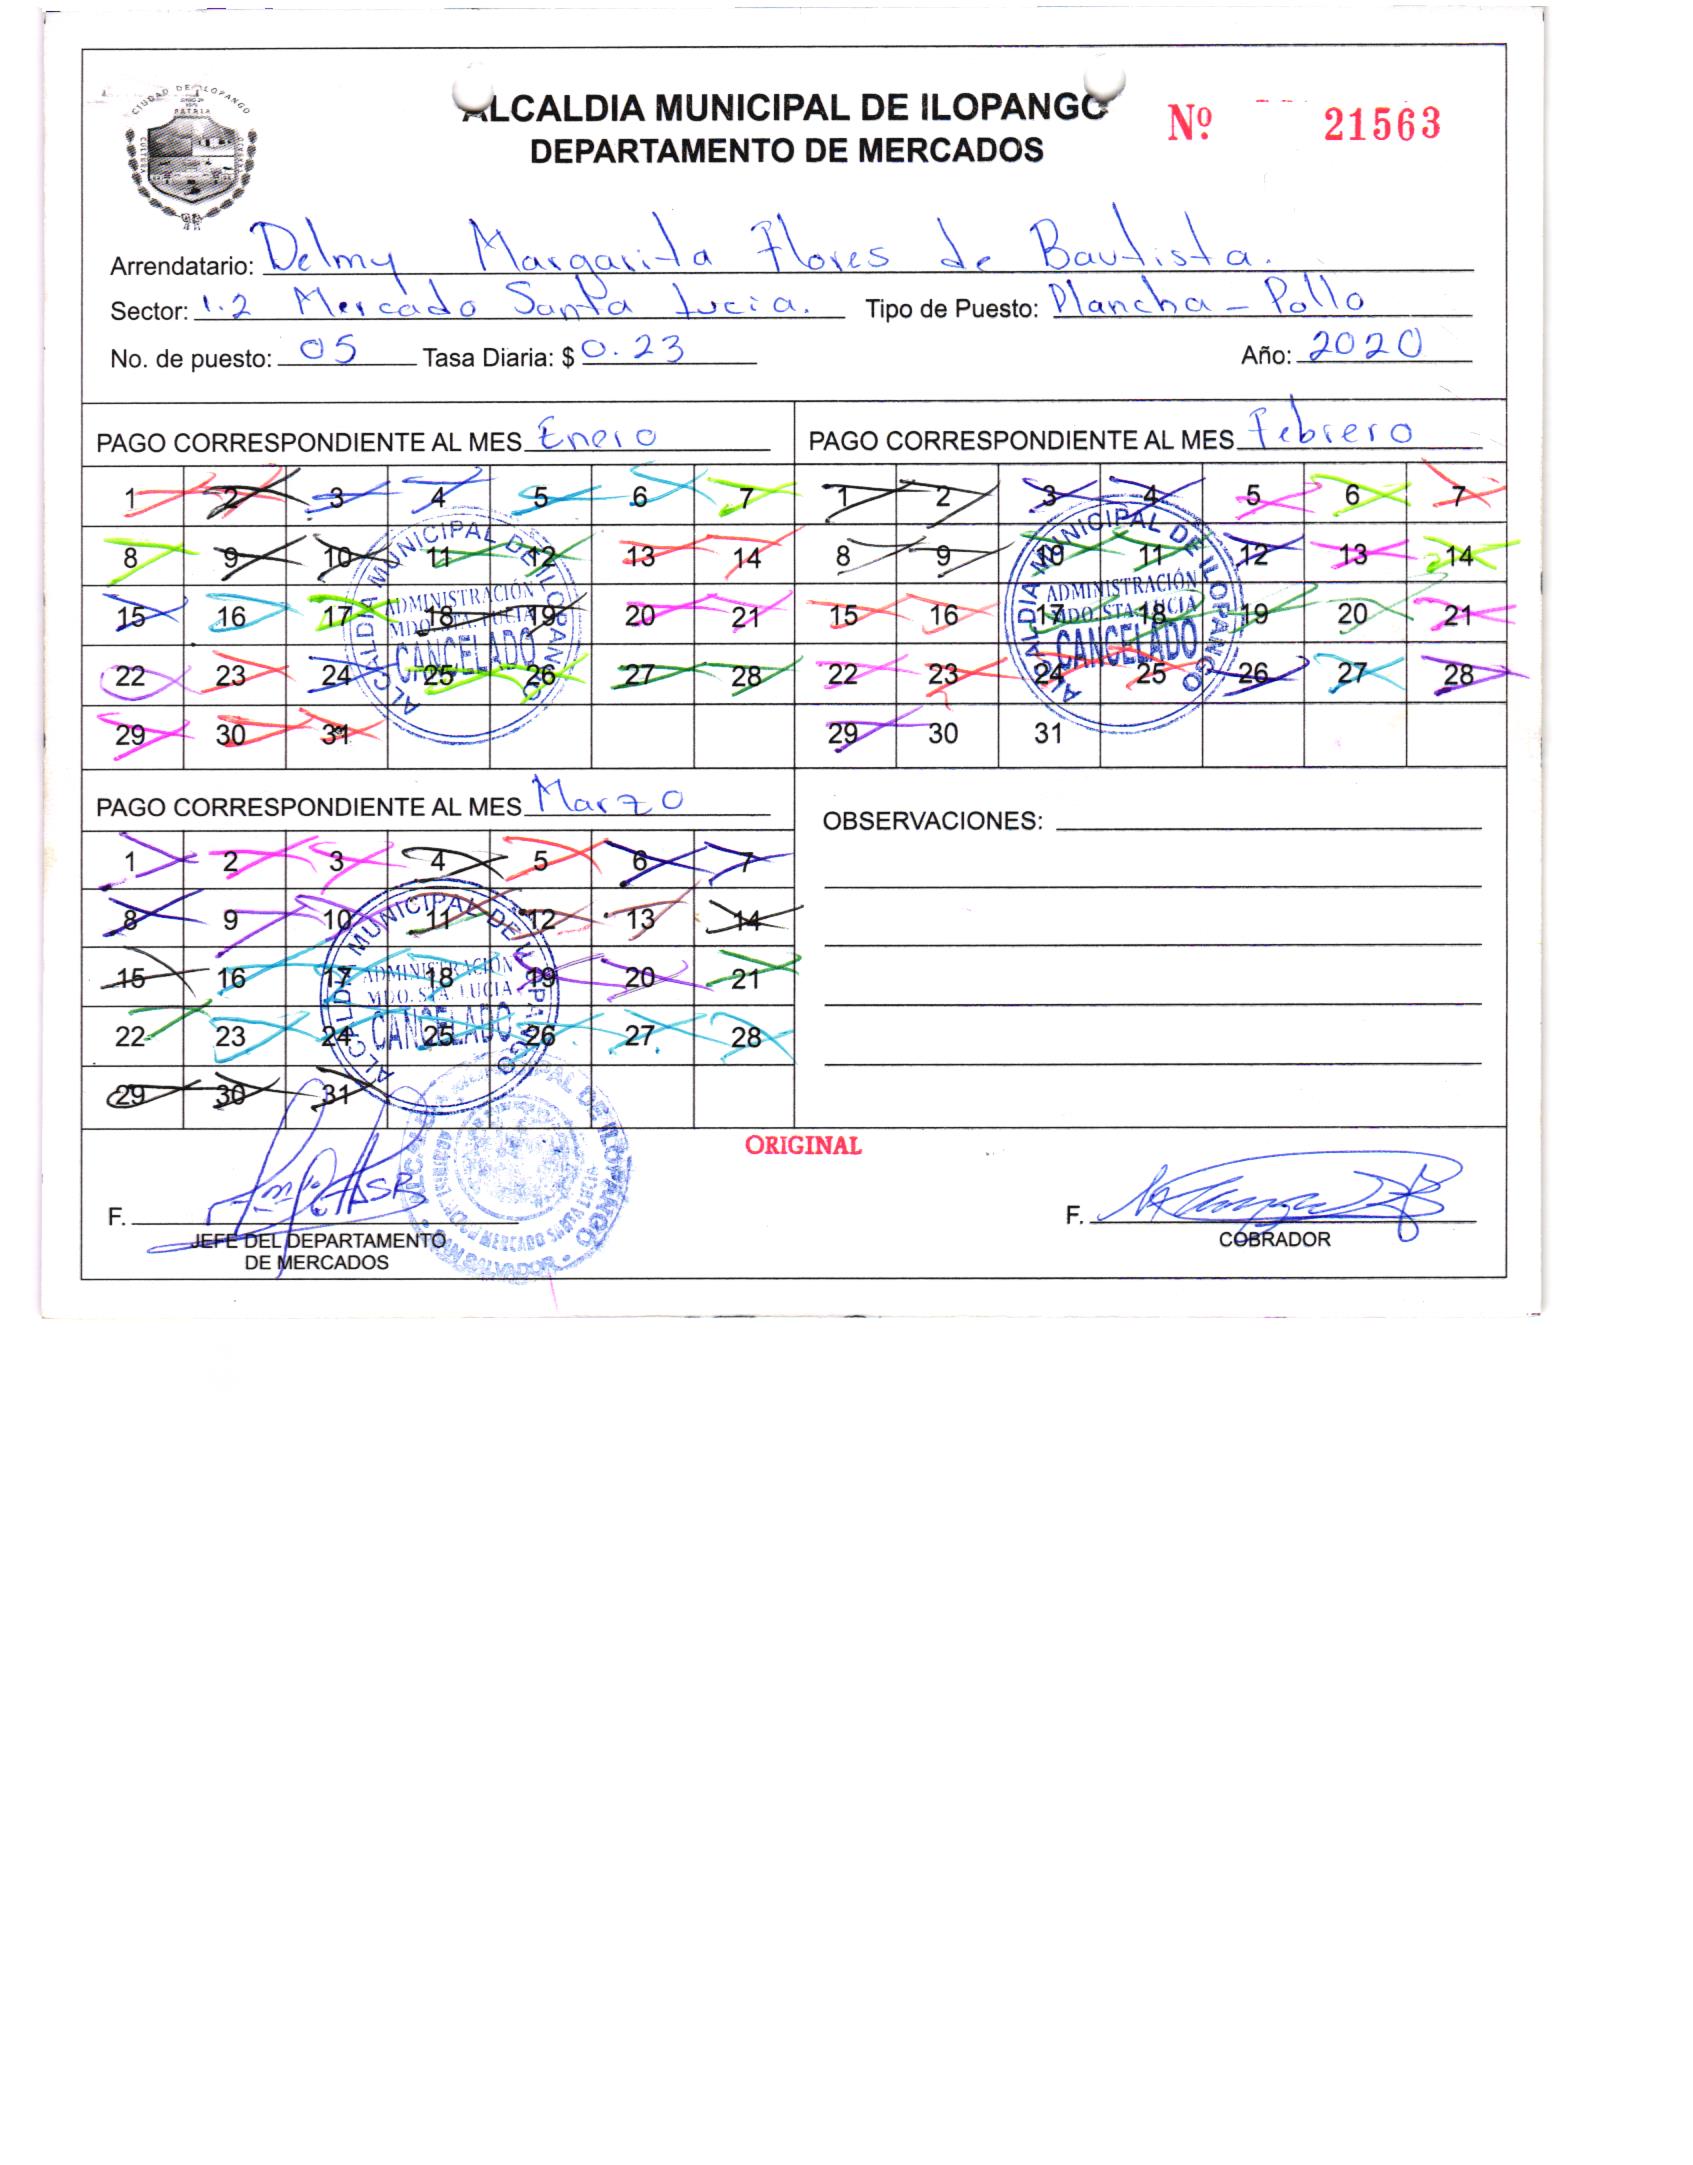 ALCALDIA MUNICIPAL DE ILOPANGO
DEPARTAMENTO DE MERCADOS
Nº 21563
CIUDAD DE ILOPANGO
PATRIA
Arrendatario: Delmy Margarita Flores de Bautista.
Sector: 1.2 Mercado Santa Lucia. Tipo de Puesto: Plancha - Pollo
No. de puesto: 05 Tasa Diaria: $ 0.23 Año: 2020
PAGO CORRESPONDIENTE AL MES Enero
1 2 3 4 5 6 7
8 9 10 11 12 13 14
15 16 17 18 19 20 21
22 23 24 25 26 27 28
29 30 31
ALCALDIA MUNICIPAL DE ILOPANGO
ADMINISTRACIÓN
MDO. STA. LUCIA
CANCELADO
PAGO CORRESPONDIENTE AL MES Febrero
1 2 3 4 5 6 7
8 9 10 11 12 13 14
15 16 17 18 19 20 21
22 23 24 25 26 27 28
29 30 31
ALCALDIA MUNICIPAL DE ILOPANGO
ADMINISTRACIÓN
MDO. STA. LUCIA
CANCELADO
PAGO CORRESPONDIENTE AL MES Marzo
1 2 3 4 5 6 7
8 9 10 11 12 13 14
15 16 17 18 19 20 21
22 23 24 25 26 27 28
29 30 31
ALCALDIA MUNICIPAL DE ILOPANGO
ADMINISTRACIÓN
MDO. STA. LUCIA
CANCELADO
OBSERVACIONES:
ORIGINAL
F.
JEFE DEL DEPARTAMENTO
DE MERCADOS
MUNICIPAL DE ILOPANGO
MERCADO SANTA LUCIA
SAN SALVADOR
F.
COBRADOR